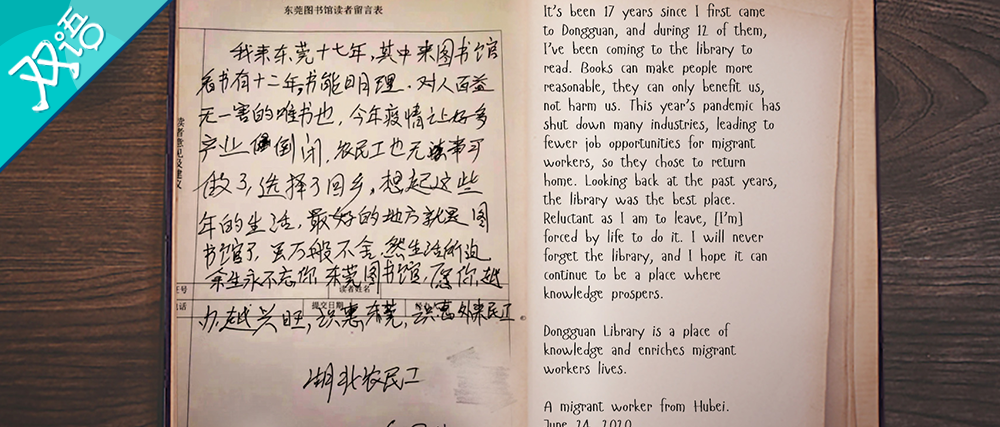 双语
东莞图书馆读者留言表
读者意见及建议
我来东莞十七年,其中来图书馆
看书有十二年,书能明理、对人百益
无一害的唯书也,今年疫情让好多
产业倒闭,农民工也无事可
做了,选择了回乡,想起这些
年的生活,最好的地方就是图
书馆了,虽万般不舍,然生活所迫
余生永不忘你,东莞图书馆,愿你越
读者姓名
提交日期
办越兴旺,识惠东莞,识惠外来民工
湖北农民工
It's been 17 years since I first came
to Dongguan, and during 12 of them,
I've been coming to the library to
read. Books can make people more
reasonable, they can only benefit us,
not harm us. This year's pandemic has
shut down many industries, leading to
fewer job opportunities for migrant
workers, so they chose to return
home. Looking back at the past years,
the library was the best place.
Reluctant as I am to leave, [I'm]
forced by life to do it. I will never
forget the library, and I hope it can
continue to be a place where
knowledge prospers.
Dongguan Library is a place of
knowledge and enriches migrant
workers lives.
A migrant worker from Hubei.
June 24, 2020